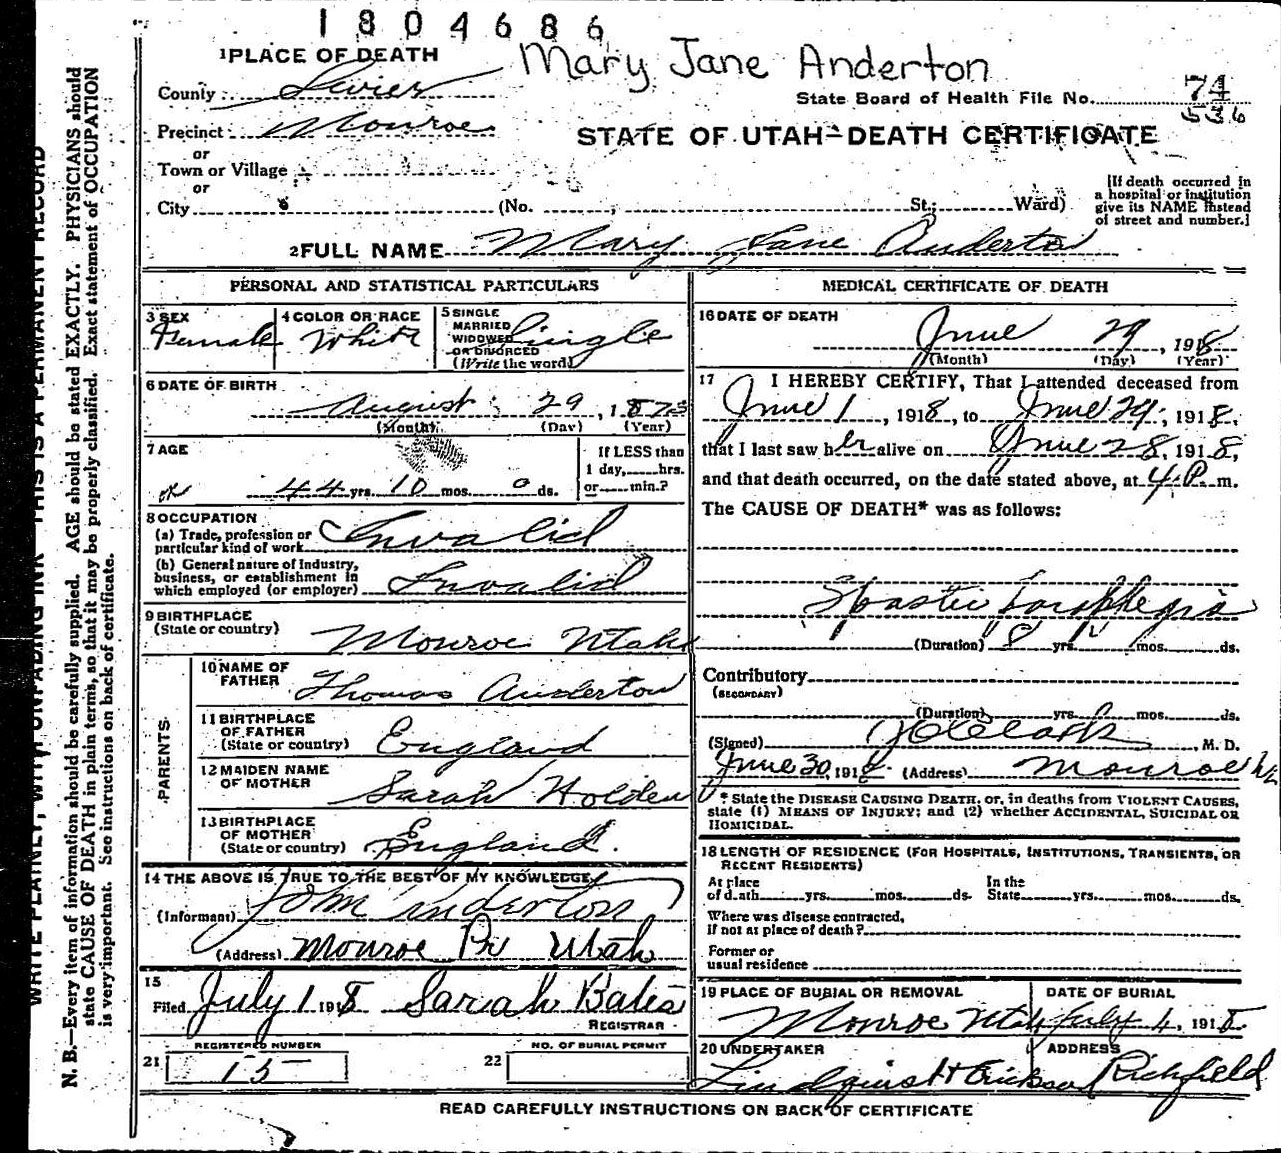 1804686
Mary Jane Anderton
1 PLACE OF DEATH
County Sevier
State Board of Health File No. 74
536
Precinct Monroe
STATE OF UTAH—DEATH CERTIFICATE
or
Town or Village
or
City (No. , St.; Ward)
[If death occurred in
a hospital or institution
give its NAME instead
of street and number.]
2 FULL NAME Mary Jane Anderton
PERSONAL AND STATISTICAL PARTICULARS
3 SEX Female
4 COLOR OR RACE White
5 SINGLE
MARRIED
WIDOWED
OR DIVORCED
(Write the word) Single
6 DATE OF BIRTH
August 29, 1873
(Month) (Day) (Year)
7 AGE
44 yrs. 10 mos. 0 ds.
If LESS than
1 day, hrs.
or min.?
8 OCCUPATION
(a) Trade, profession or
particular kind of work Invalid
(b) General nature of Industry,
business, or establishment in
which employed (or employer) Invalid
9 BIRTHPLACE
(State or country) Monroe Utah
PARENTS
10 NAME OF
FATHER Thomas Anderton
11 BIRTHPLACE
OF FATHER
(State or country) England
12 MAIDEN NAME
OF MOTHER Sarah Holden
13 BIRTHPLACE
OF MOTHER
(State or country) England.
14 THE ABOVE IS TRUE TO THE BEST OF MY KNOWLEDGE
(Informant) John Anderton
(Address) Monroe Utah
15
Filed July 1 1918 Sariah Bates
REGISTRAR
REGISTERED NUMBER
21 15
NO. OF BURIAL PERMIT
22
MEDICAL CERTIFICATE OF DEATH
16 DATE OF DEATH
June 29, 1918
(Month) (Day) (Year)
17 I HEREBY CERTIFY, That I attended deceased from
June 1, 1918, to June 29, 1918,
that I last saw her alive on June 28, 1918,
and that death occurred, on the date stated above, at 4 P. m.
The CAUSE OF DEATH* was as follows:
Spastic Paraplegia
(Duration) 8 yrs. mos. ds.
Contributory
(SECONDARY)
(Duration) yrs. mos. ds.
(Signed) , M. D.
June 30, 1918 (Address) Monroe
* State the DISEASE CAUSING DEATH, or, in deaths from VIOLENT CAUSES,
state (1) MEANS OF INJURY; and (2) whether ACCIDENTAL, SUICIDAL OR
HOMICIDAL.
18 LENGTH OF RESIDENCE (FOR HOSPITALS, INSTITUTIONS, TRANSIENTS, OR
RECENT RESIDENTS)
At place
of death yrs. mos. ds.
In the
State yrs. mos. ds.
Where was disease contracted,
if not at place of death?
Former or
usual residence
19 PLACE OF BURIAL OR REMOVAL
Monroe Utah
DATE OF BURIAL
July 4, 1918
20 UNDERTAKER
Lindquist Erickson
ADDRESS
Richfield
READ CAREFULLY INSTRUCTIONS ON BACK OF CERTIFICATE
WRITE PLAINLY, WITH UNFADING INK—THIS IS A PERMANENT RECORD
N. B.—Every item of information should be carefully supplied. AGE should be stated EXACTLY. PHYSICIANS should
state CAUSE OF DEATH in plain terms, so that it may be properly classified. Exact statement of OCCUPATION
is very important. See instructions on back of certificate.